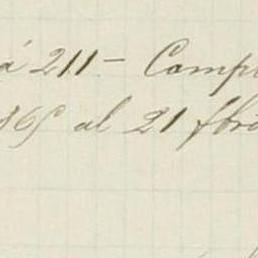 á 211 - Camp
865 al 21 fbr